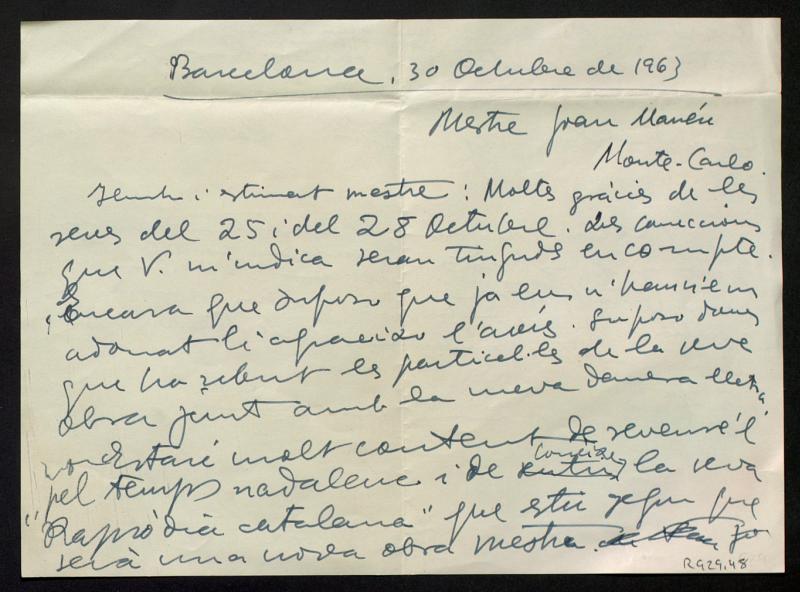 Barcelona, 30 Octubre de 1963
Mestre Joan Manén
Monte-Carlo.
i estimat mestre: Moltes gràcies de les
seves del 25 i del 28 Octubre. Les correccions
que V. m'indica seran tingudes en compte.
Encara que suposo que ja ens n'hauriem
adonat li agraeixo l'avís. Suposo doncs
que ha rebut les particel·les de la seva
obra junt amb la meva darrera lletra,
Estaré molt content de reveure'l
pel temps nadalenc i de coneixer la seva
"Rapsòdia catalana" que estic segur que
serà una nova obra mestra. Jo
R929.48